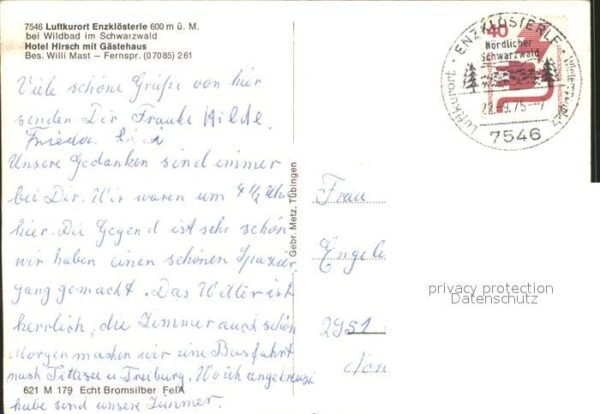 7546 Luftkurort Enzklösterle 600 m ü. M.
bei Wildbad im Schwarzwald
Hotel Hirsch mit Gästehaus
Bes. Willi Mast – Fernspr. (07085) 261
Viele schöne Grüße von hier
senden Dir Frauke Hilde
Frieda
Unsere Gedanken sind immer
bei Dir. Wir waren um 4 1/2 Uhr
hier. Die Gegend ist sehr schön
wir haben einen schönen Spazier
gang gemacht. Das Wetter ist
herrlich, die Zimmer auch schön
Morgen machen wir eine Busfahrt
nach Tittisee u Freiburg. Noch angekreuzt
habe sind unsere Zimmer.
621 M 179 Echt Bromsilber FeIA
Gebr. Metz, Tübingen
40
Luftkurort · ENZKLÖSTERLE
Nördlicher
Schwarzwald
7546
Frau
2951
privacy protection
Datenschutz